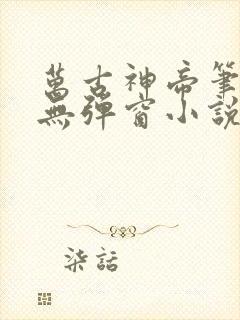 萬古神帝筆
無彈窗小說
柒話